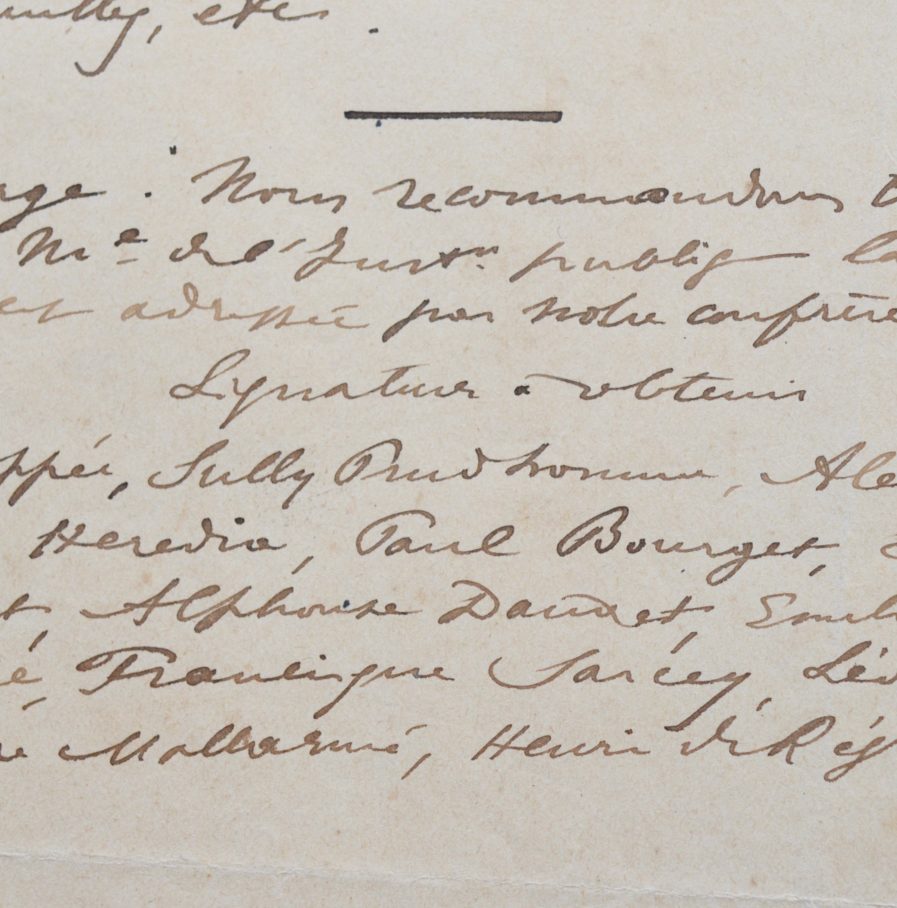 etc.
age : Nous recommandons t
Me de l'Instn publiq la
et adressée par notre confrère
Signatures à obtenir
ppée, Sully Prudhomme, Ale
Heredia, Paul Bourget,
t, Alphonse Daudet, Emil
é, Francisque Sarcey, Léo
re Mallarmé, Henri de Rég